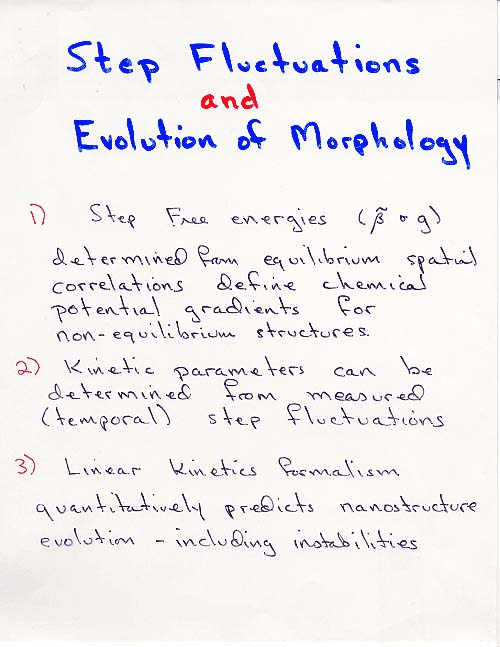 Step Fluctuations
and
Evolution of Morphology
1) Step Free energies (β̃ or g)
determined from equilibrium spatial
correlations define chemical
potential gradients for
non-equilibrium structures.
2) Kinetic parameters can be
determined from measured
(temporal) step fluctuations
3) Linear Kinetics formalism
quantitatively predicts nanostructure
evolution - including instabilities